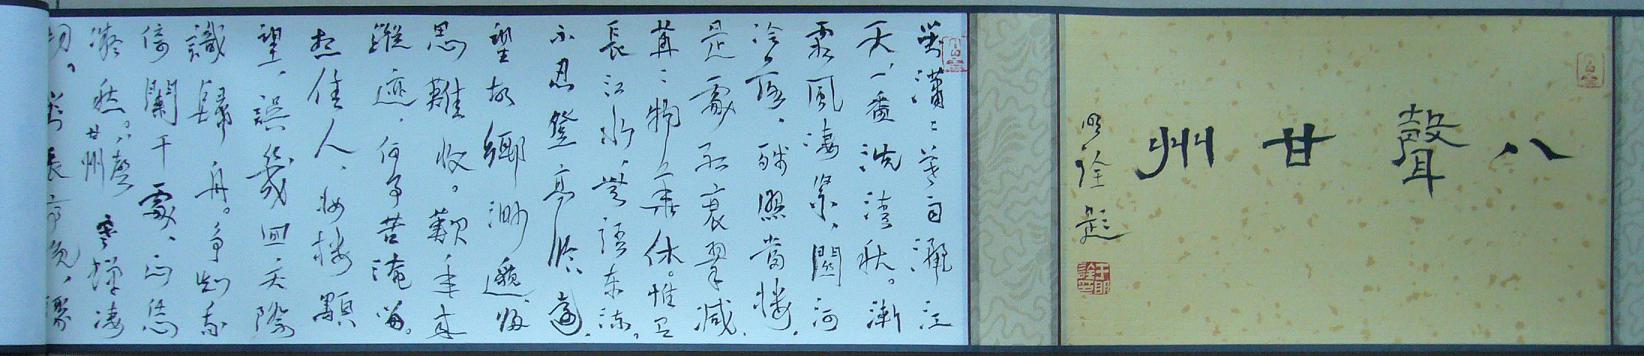 八聲甘州
明詮題
于明詮印
對瀟〻暮雨灑江
天、一番洗清秋。漸
霜風凄緊、關河
冷落、殘照當樓、
是處紅衰翠減、
苒〻物華休。惟有
長江水、無語東流。
不忍登高臨遠、
望故鄉渺邈、歸
思難收。歎年來
蹤迹、何事苦淹留。
想佳人、妝樓顒
望、誤幾回天際
識歸舟。爭知我
倚闌干處、正恁
凝愁。八聲甘州 寒蟬凄
切。對長亭晚、驟